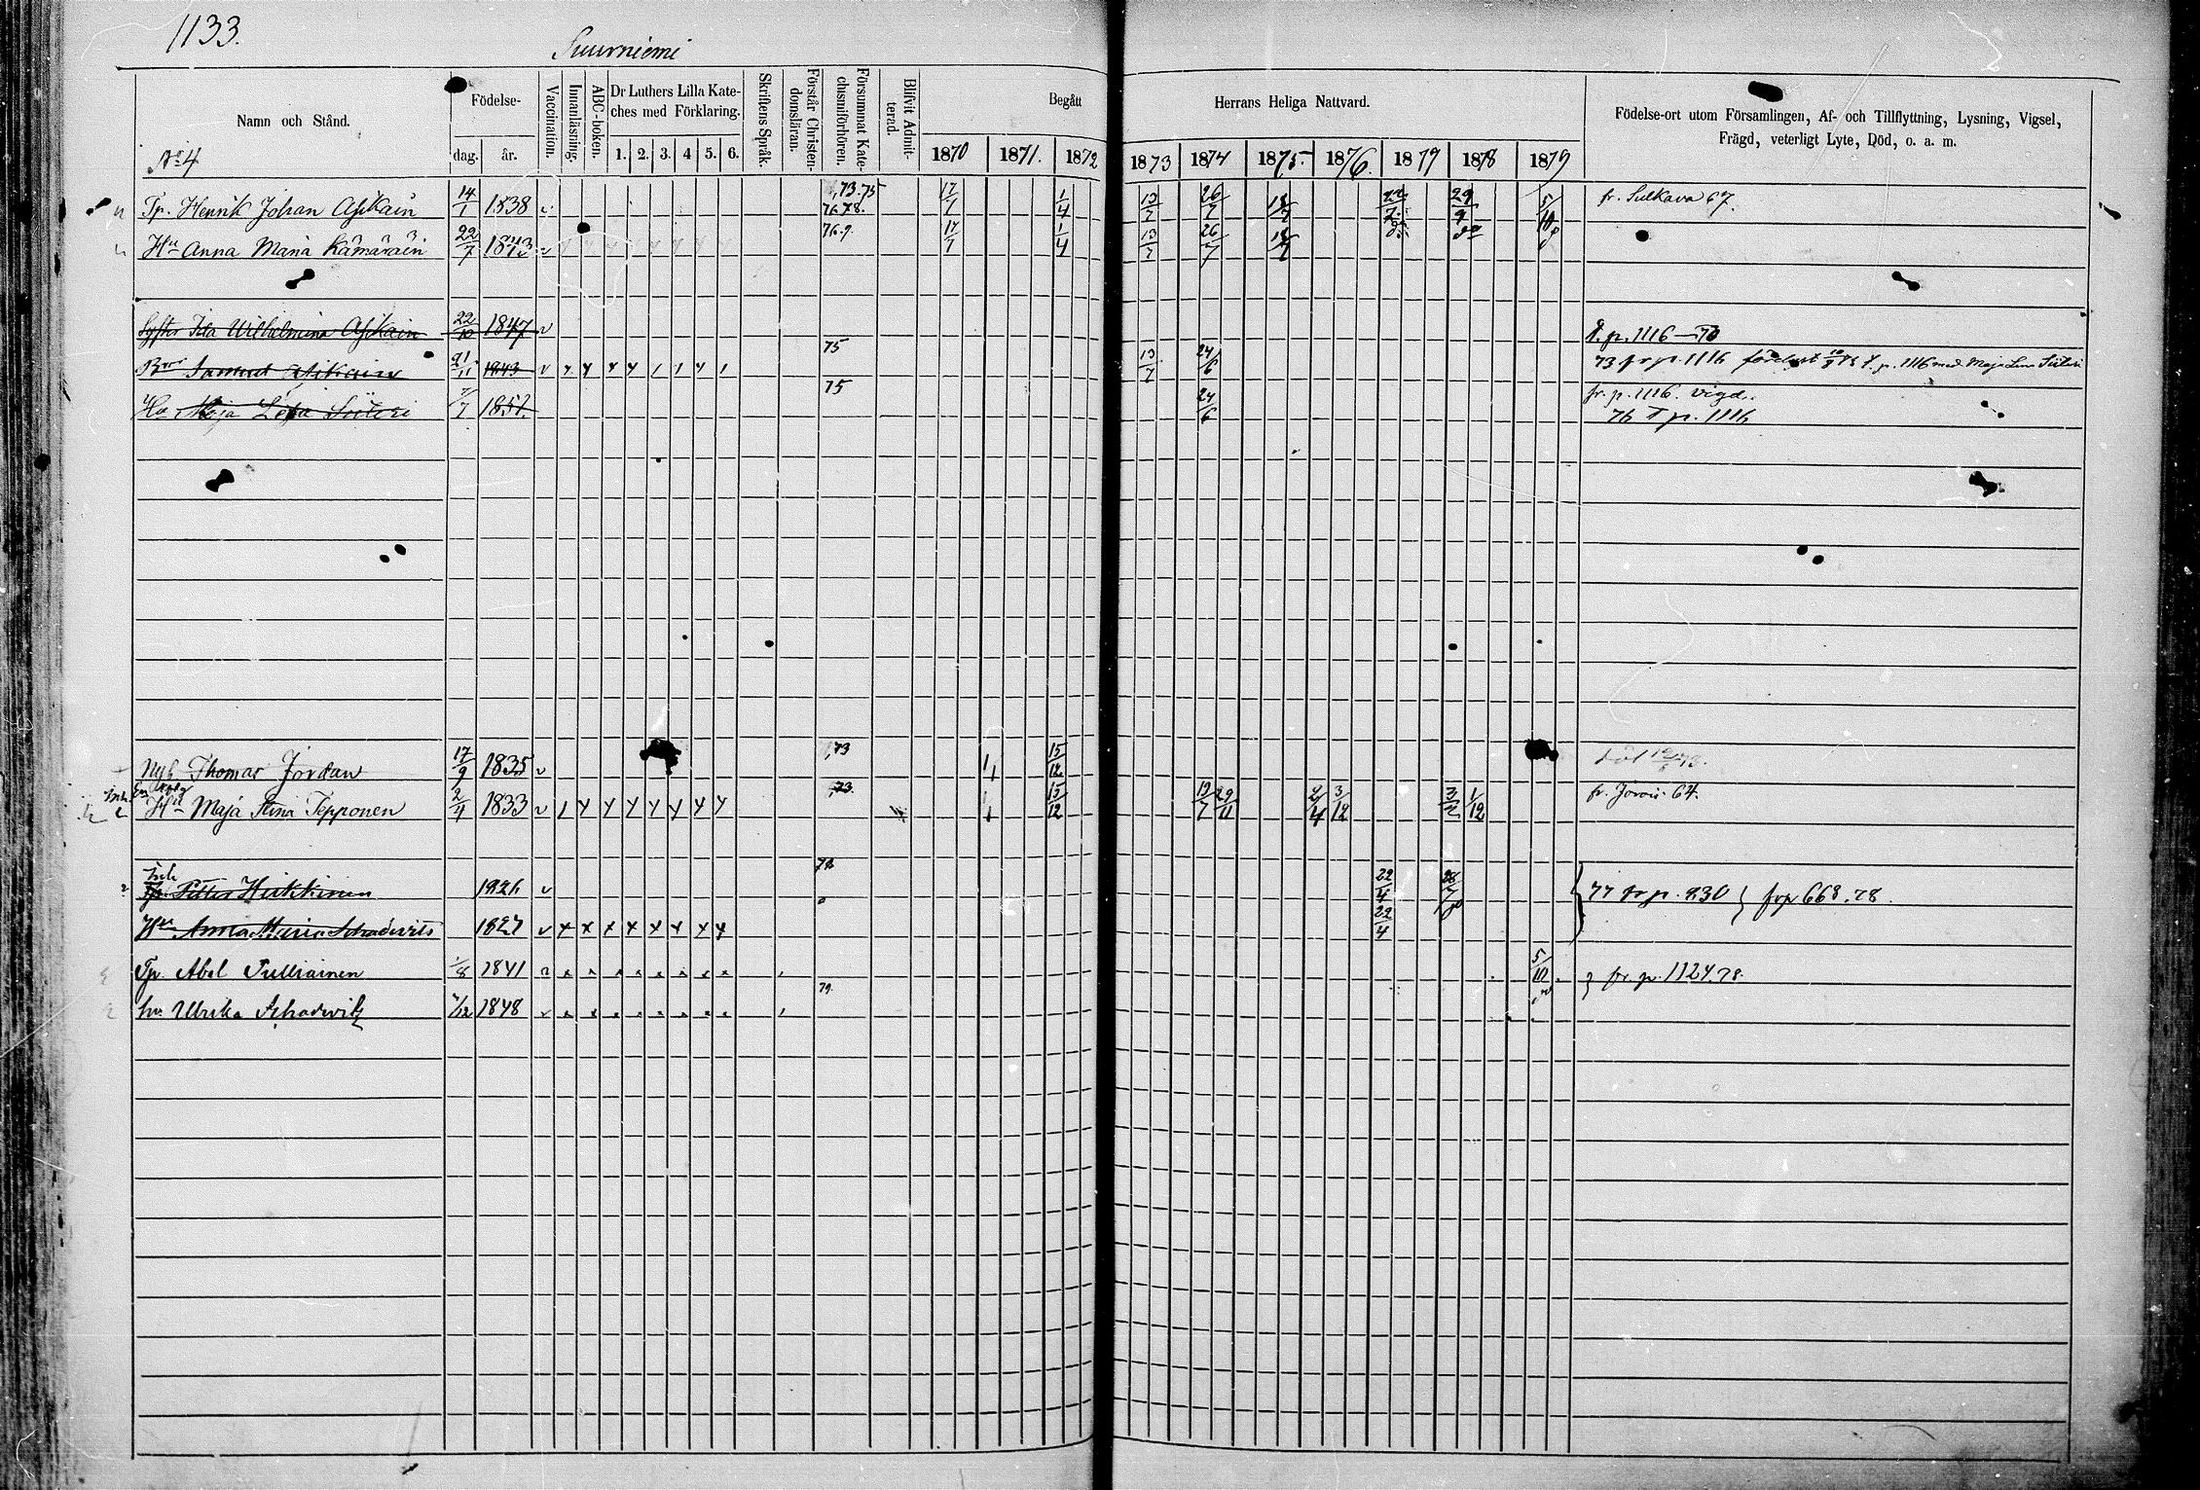 1133.
Suurniemi
Namn och Stånd.
Födelse-
dag.
år.
Vaccination.
Innanläsning.
ABC-boken.
Dr Luthers Lilla Kate-
ches med Förklaring.
1. 2. 3. 4 5. 6.
Skriftens Språk.
Förstår Christen-
domsläran.
Försummat Kate-
chismiförhören.
Blifvit Admit-
terad.
Begått
Herrans Heliga Nattvard.
1870 1871. 1872 1873 1874 1875. 1876. 1877 1878 1879
Födelse-ort utom Församlingen, Af- och Tillflyttning, Lysning, Vigsel,
Frägd, veterligt Lyte, Död, o. a. m.
No 4
Tp. Henrik Johan Asikain 14/1 1838 v 73.75 76.78. 17/7 1/4 13/7 26/7 18/7 29/9 5/10 fr. Sulkava 67.
Hu Anna Maria Kämäräin 22/7 1843 v 76.9. 17/7 1/4 13/7 26/7 18/7
Syster Ida Wilhelmina Asikain 22/10 1847 v p. 1116 — 70
Bror Samuel Asikain 21/11 1843 v 75 13/7 24/6 73 fr p. 1116 p. 1116 med Maja Lena
Hu Maja Lena 1851. 75 24/6 fr. p. 1116. vigd.
76 T p. 1116
Nyb Thomas Jordan 17/9 1835 v 73 1/1 15/12
Enka
Hu Maja Stina Tepponen 2/4 1833 v 73. 15/12 29/11 3/12 1/12 fr. Jorois 64.
Inh
Tp. Petter Heikkinen 1826 v 78 22/4 28/7 77 fr p. 830 } fr p 668. 78.
Hu Anna Maria Schadevits 1827 v 22/4
Tp. Abel Tulliainen 1/8 1841 5/10 } fr. p. 1124 78.
hu. Ulrika Schadevitz 1848 79.